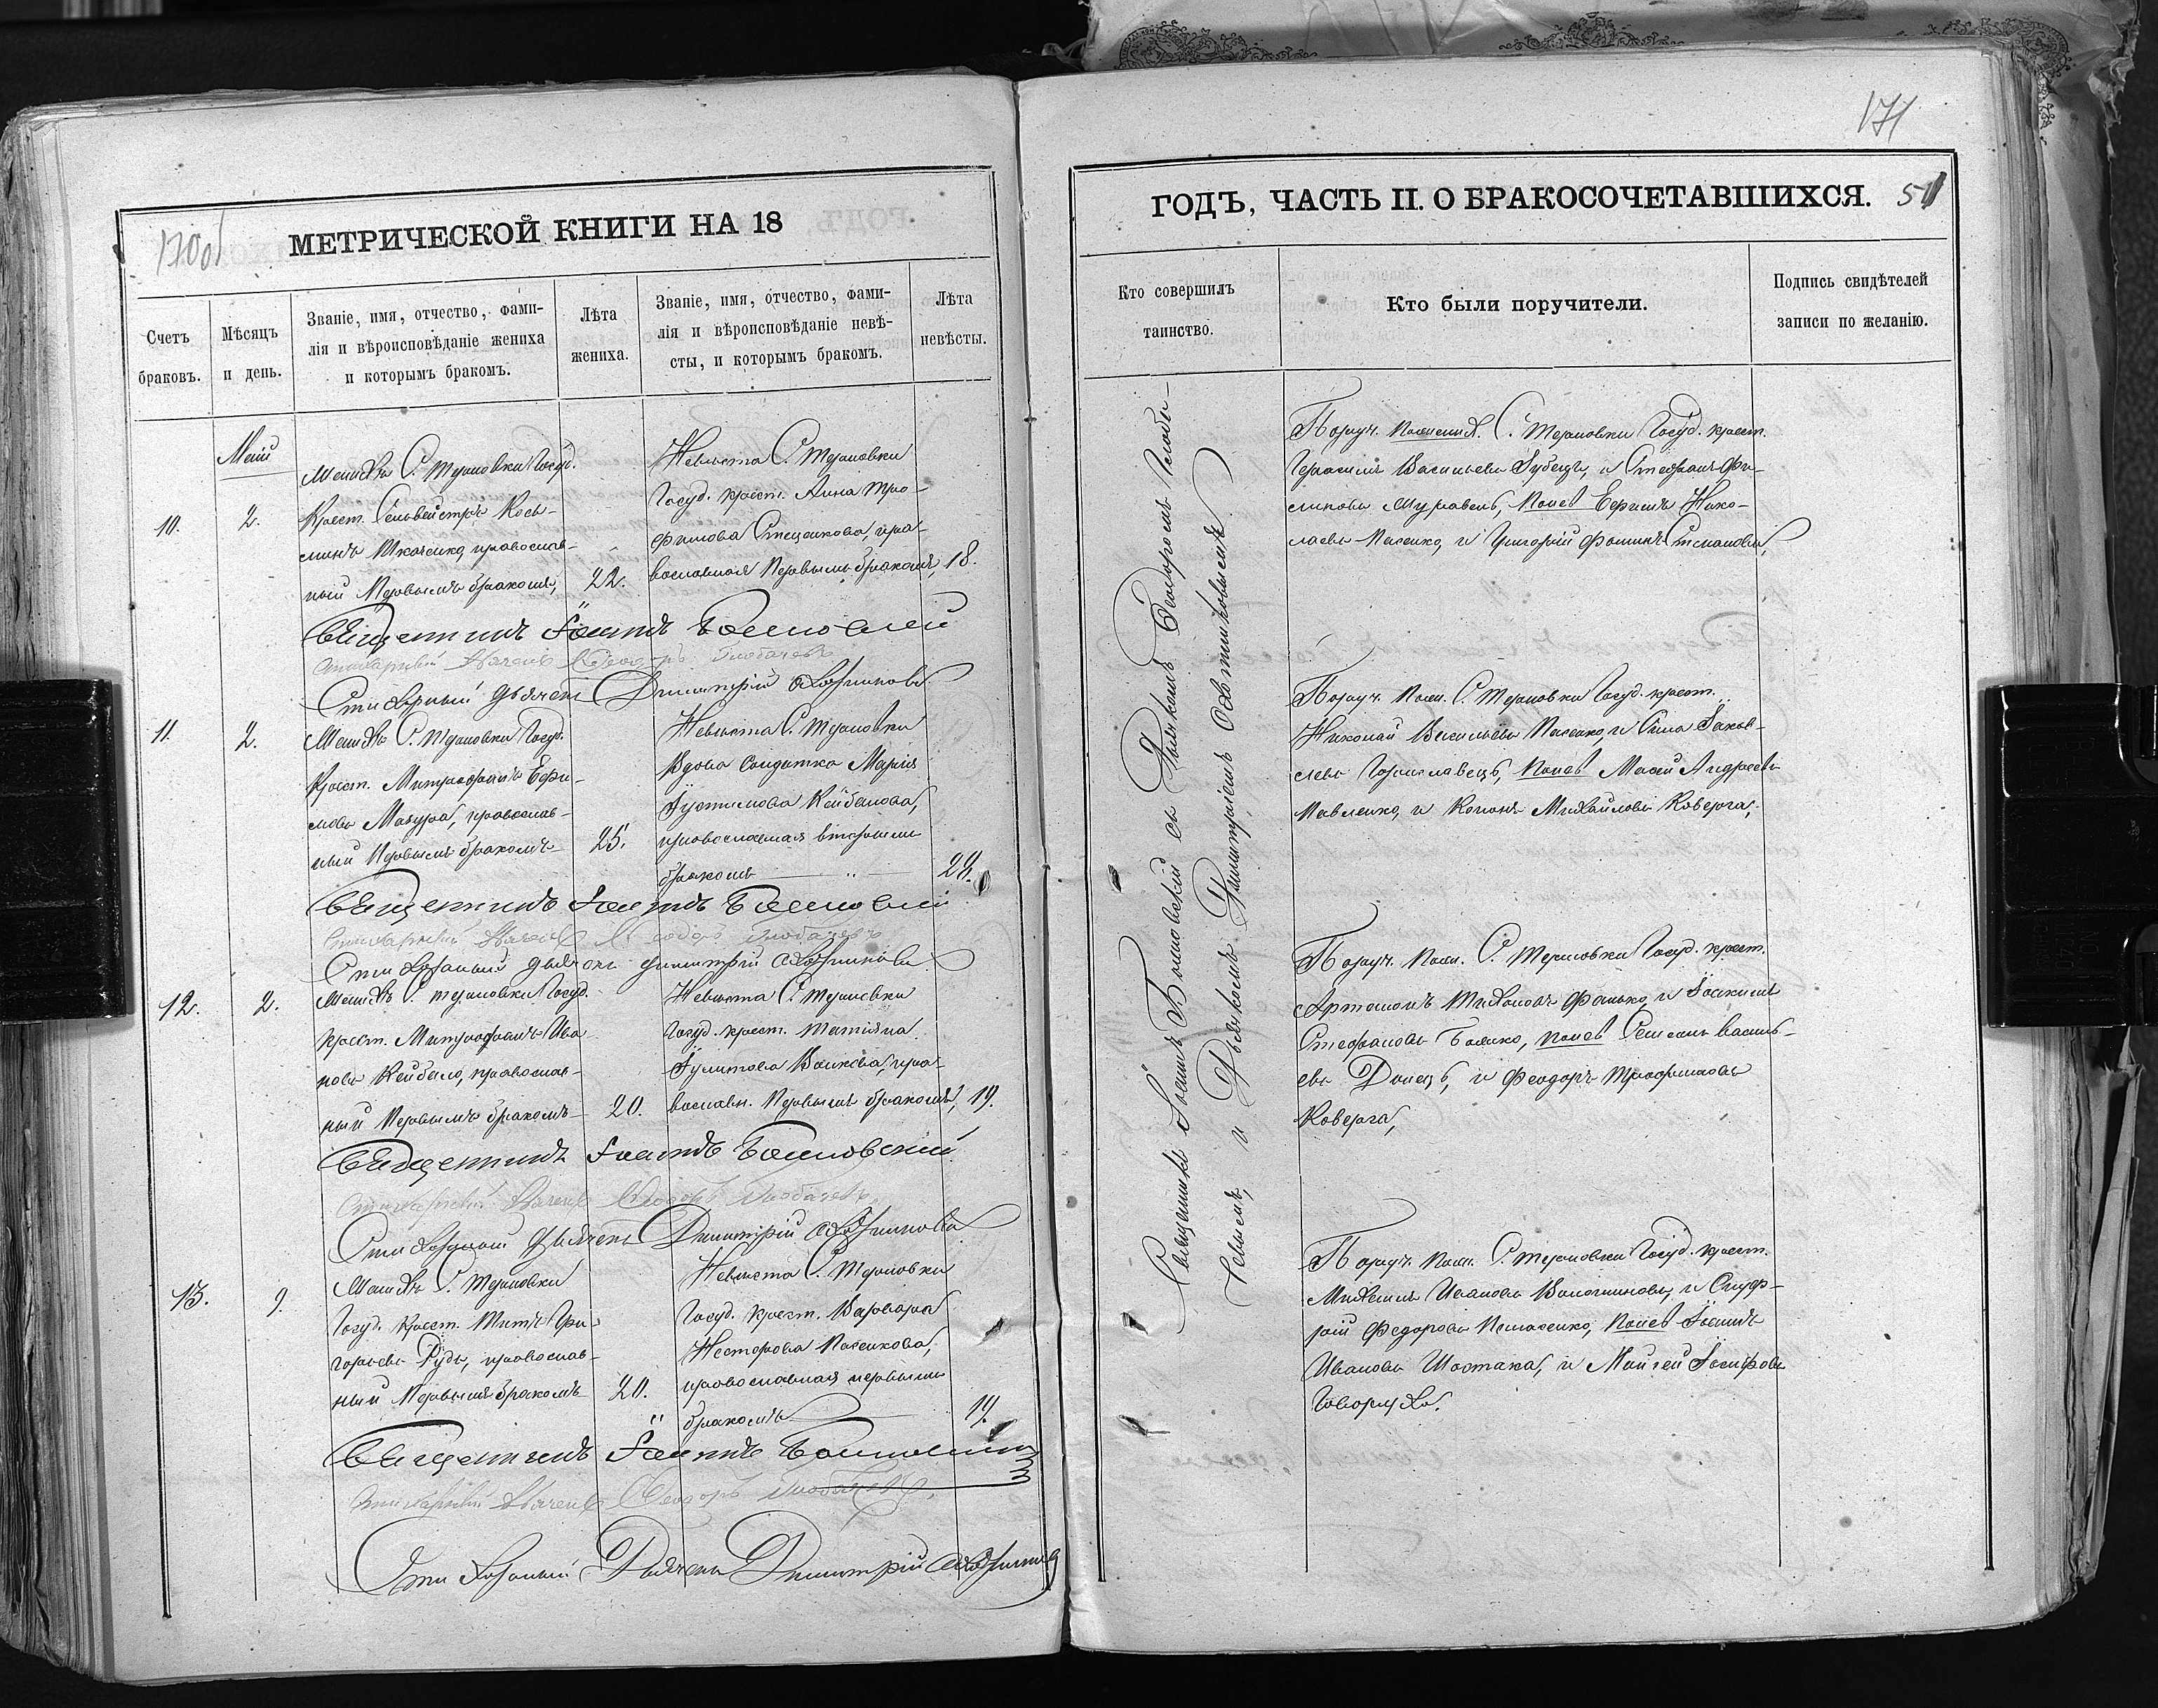 170об
МЕТРИЧЕСКОЙ КНИГИ НА 18
Счетъ браковъ.
Мѣсяцъ и день.
Званіе, имя, отчество, фами-
лія и вѣроисповѣданіе жениха
и которымъ бракомъ.
Лѣта жениха.
Званіе, имя, отчество, фами-
лія и вѣроисповѣданіе невѣ-
сты, и которымъ бракомъ.
Лѣта невѣсты.
Маій
10.
2.
Женихъ С. Терновки Госуд.
Крест. Сельвестръ Кось-
минъ Ткаченко, православ-
ный Первымъ бракомъ,
22.
Невѣста С. Терновки
Госуд. крест. Анна Тро-
фимова Стеценкова, пра-
вославная Первымъ бракомъ,
18.
Священникъ Іоаннъ Башловскій
Стихарный Дьячекъ Ѳеодоръ Глобачевъ
Стихарный Дьячекъ Димитрій
11.
2.
Женихъ С. Терновки Госуд.
Крест. Митрофанъ Ефи-
мовъ Мазура, православ-
ный Первымъ бракомъ
25.
Невѣста С. Терновки
Вдова Солдатка Марія
Іустинова Кейбалова,
православная вторымъ
бракомъ
28.
Священникъ Іоаннъ
Стихарный Дьячекъ Ѳеодоръ Глобачевъ
Стихарный Дьячекъ Димитрій
12.
2.
Женихъ С. Терновки Госуд.
Крест. Митрофанъ Ива-
новъ Кейбало, православ-
ный Первымъ бракомъ
20.
Невѣста С. Терновки
Госуд. крест. Татіяна
Волкова, пра-
вославн. Первымъ бракомъ,
19.
Священникъ Іоаннъ
Стихарный Дьячекъ Ѳеодоръ Глобачевъ
Стихарный Дьячекъ Димитрій
13.
9.
Женихъ С. Терновки
Госуд. Крест. Титъ Гри-
горьевъ Рудь, православ-
ный Первымъ бракомъ
20.
Невѣста С. Терновки
Госуд. Крест. Варвара
Несторова Пасенкова,
православная первымъ
бракомъ
19.
Священникъ Іоаннъ
Стихарный Дьячекъ Ѳеодоръ Глобачевъ
Стихарный Дьячекъ Димитрій
171
ГОДЪ, ЧАСТЬ II. О БРАКОСОЧЕТАВШИХСЯ.
51
Кто совершилъ таинство.
Кто были поручители.
Подпись свидѣтелей
записи по желанію.
Священникъ Іоаннъ съ Дьячкомъ Ѳеодоромъ Глоба-
чевымъ, и Дьячкомъ Димитріемъ
Поруч. Женихѣ. С. Терновки Госуд. крест.
Герасимъ Васильевъ Губецъ, и Стефанъ Фи-
липовъ Журавель, Невѣ Ефимъ Нико-
лаевъ Пасенко, и Григорій Фоминъ Степановъ,
Поруч. Жен. С. Терновки Госуд. крест.
Николай Васильевъ Пасенко, и Сила Іаков-
левъ Невѣ Моѵсій Андреевъ
Павленко, и Кононъ Михайловъ Коверга,
Поруч. Жен. С. Терновки Госуд. крест.
Артамонъ Тихоновъ и Іоакимъ
Стефановъ Невѣ Семенъ Василь-
евъ Донецъ, и Феодоръ Трофимовъ
Коверга,
Поруч. Жен. С. Терновки Госуд. крест.
Михаилъ Ивановъ и Онуф-
рій Федоровъ Невѣ Іоаннъ
Ивановъ Шостакъ, и Іосифовъ